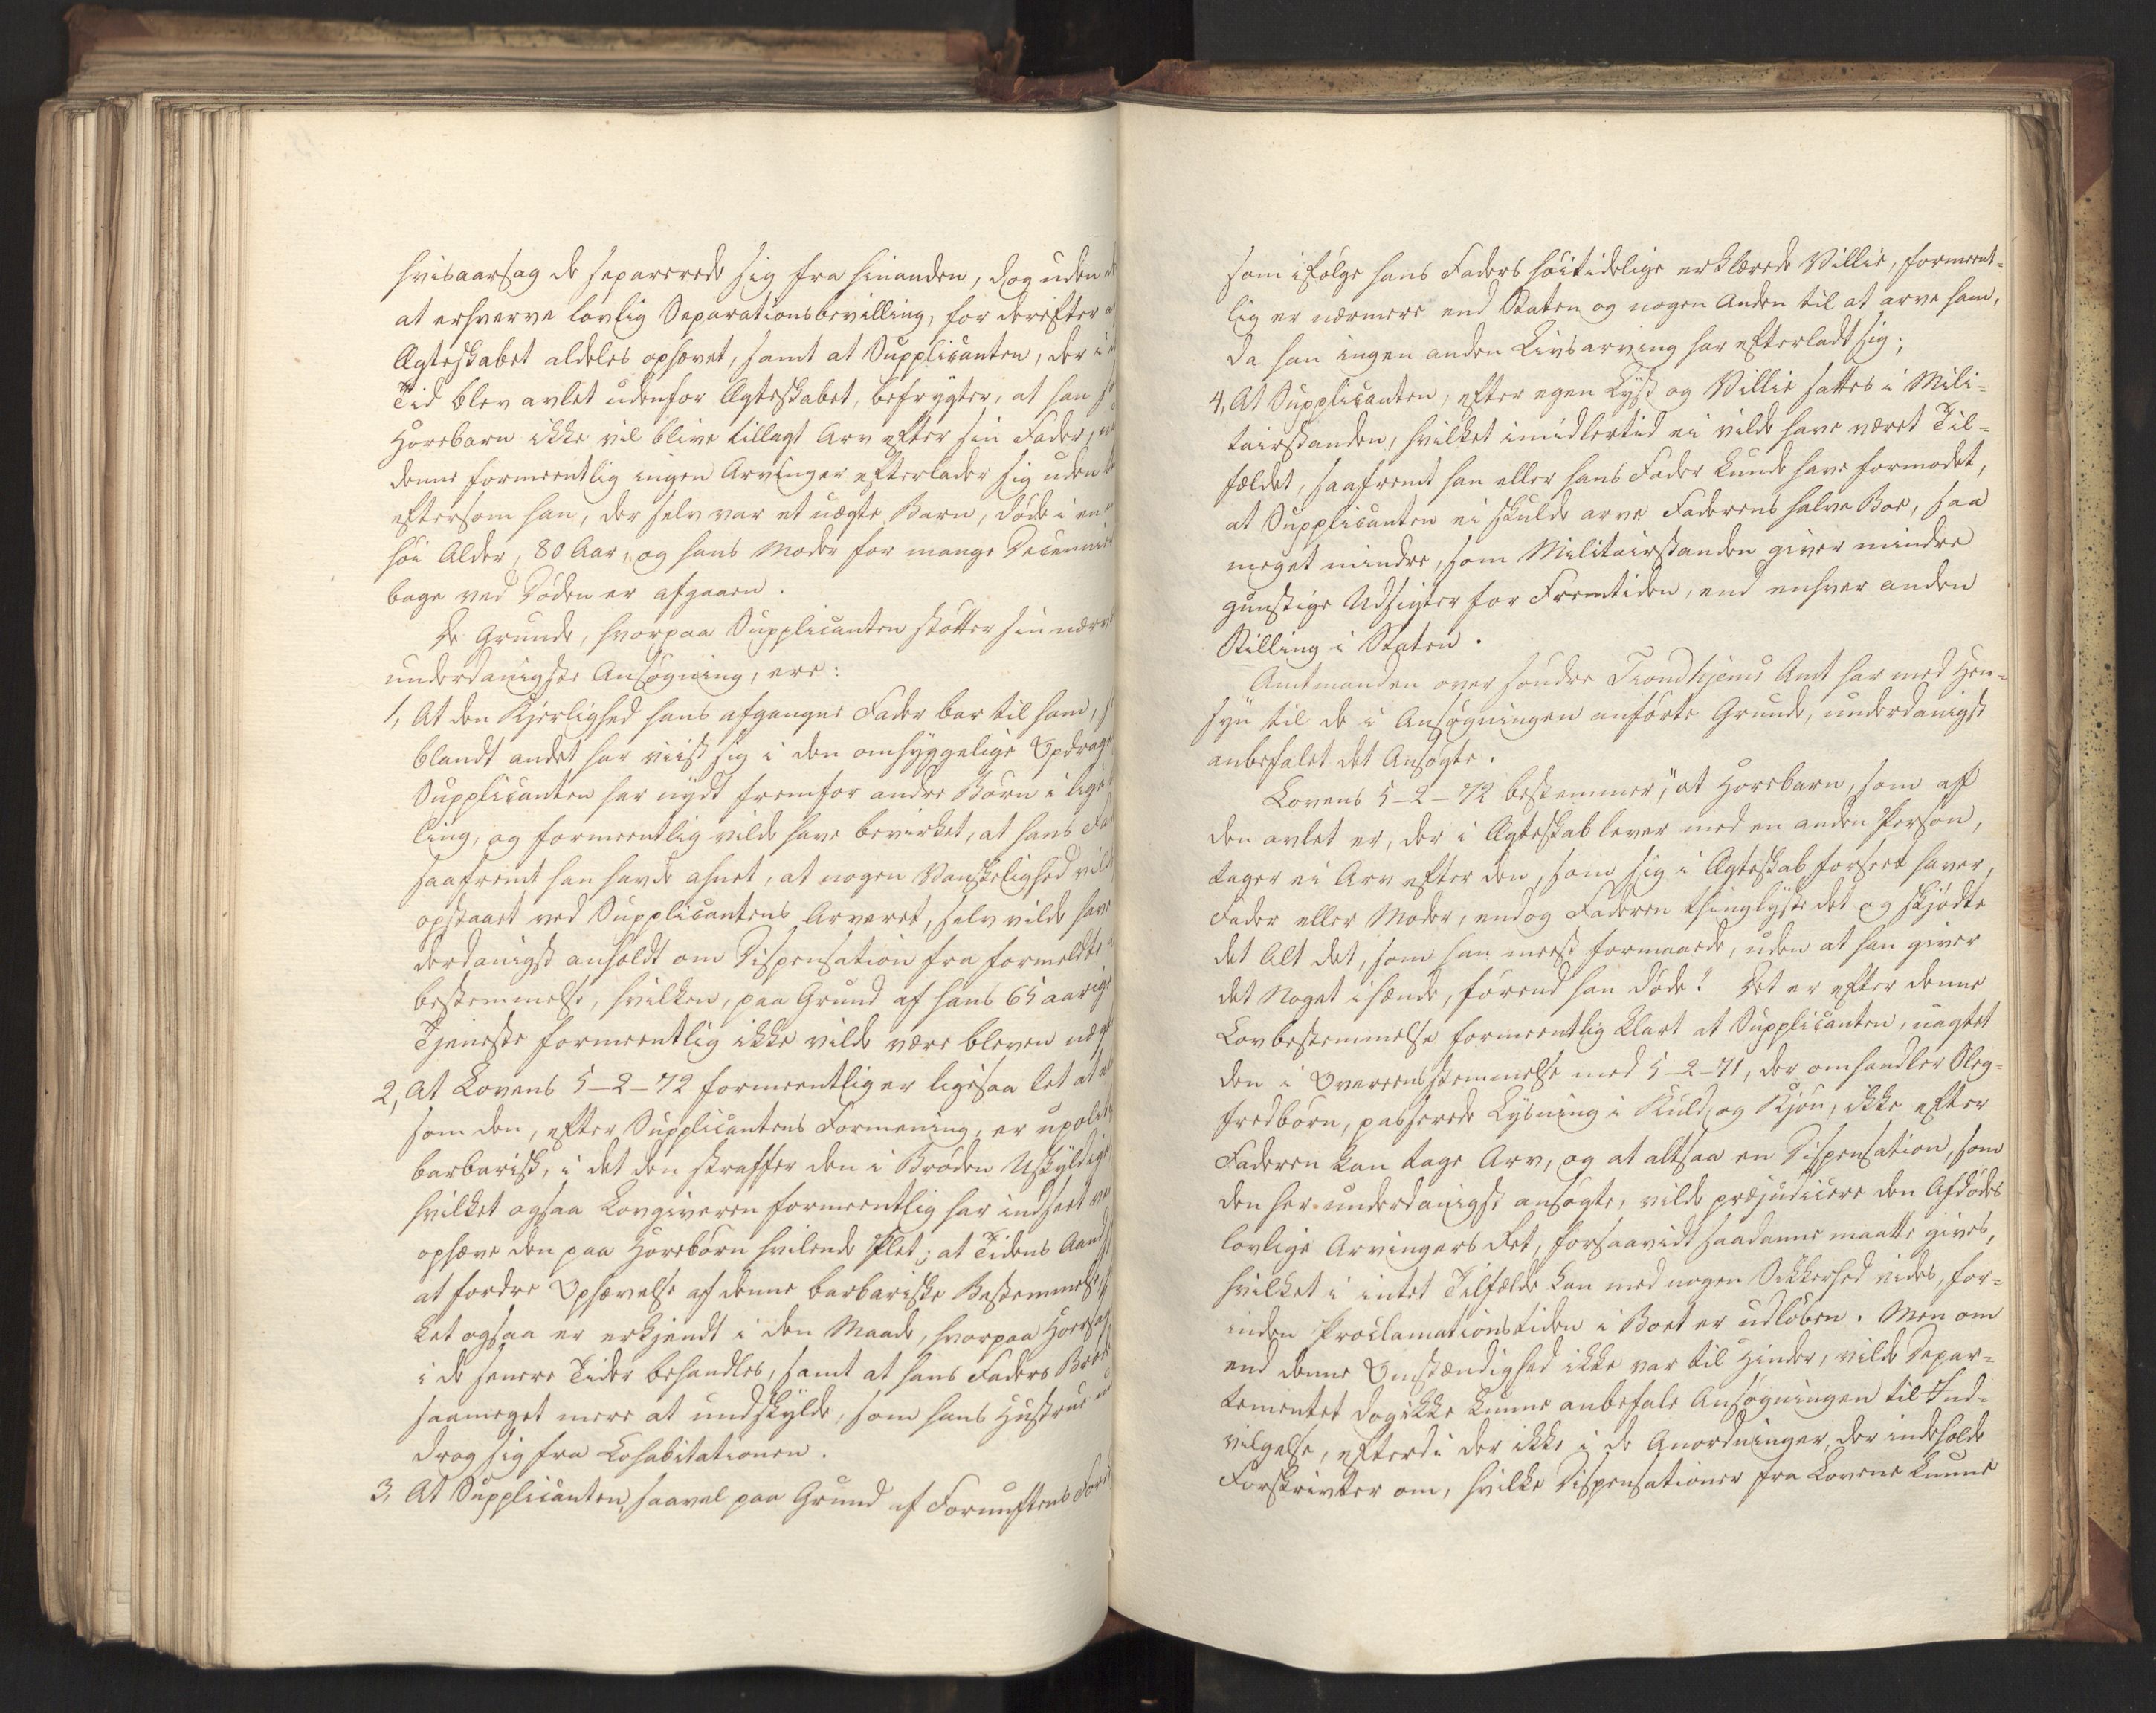 hvisaarsag de separerede sig fra hinanden, dog uden
at erhverve lovlig Separationsbevilling, for derefter
Ægteskabet aldeles ophævet, samt at Supplicanten, der i
Tid blev avlet udenfor Ægteskabet, befrygter, at han
Horebarn ikke vil blive tillagt Arv efter sin Fader,
denne formeentlig ingen Arvinger efterlader sig uden
eftersom han, der selv var et uægte Barn, døde i en
høi Alder, 80 Aar, og hans Moder for mange Decennier
bage ved Døden er afgaaen.
De Grunde, hvorpaa Supplicanten støtter sin
underdanigste Ansøgning, ere:
1, At den Kjerlighed hans afgangne Fader bar til ham,
blandt andet har viist sig i den omhyggelige
Supplicanten har nydt fremfor andre Børn i
ling, og formeentlig vilde have bevirket, at hans
saafremt han havde ahnet, at nogen Vanskelighed
opstaaet ved Supplicantens Arveret, selv vilde have
derdanigst anholdt om Dispensation fra formeldte
bestemmelse, hvilken, paa Grund af hans 65 aarige
Tjeneste formeentlig ikke vilde være bleven
2, At Lovens 5-2-72 formeentlig er ligesaa let at
som den, efter Supplicantens Formening, er
barbarisk, i det den straffer den i Brøden Uskyldige
hvilket ogsaa Lovgiveren formeentlig har indseet
ophæve den paa Horebørn hvilende Plet; at Tidens Aand
at fordre Ophævelse af denne barbariske Bestemmelse
ket ogsaa er erkjendt i den Maade, hvorpaa
i de senere Tider behandles, samt at hans Faders
saameget mere at undskylde, som hans Hustrue
drog sig fra Cohabitationen.
3, At Supplicanten, saavel paa Grund af Fornuftens
som ifølge hans Faders høitidelige erklærede Villie, formeent-
lig er nærmere end Staten og nogen Anden til at arve ham,
da han ingen anden Livsarving har efterladt sig;
4, At Supplicanten, efter egen Lyst og Villie sattes i Mili-
tairstanden, hvilket imidlertid ei vilde have været Til-
fældet, saafremt han eller hans Fader kunde have formodet,
at Supplicanten ei skulde arve Faderens halve Boe, saa
meget mindre, som Militairstanden giver mindre
gunstige Udsigter for Fremtiden, end enhver anden
Stilling i Staten.
Amtmanden over søndre Trondhjems Amt har med Hen-
syn til de i Ansøgningen anførte Grunde, underdanigst
anbefalet det Ansøgte.
Lovens 5-2-72 bestemmer, "at Horebarn, som af
den avlet er, der i Ægteskab lever med en anden Person,
tager ei Arv efter den, som sig i Ægteskab forseet haver,
Fader eller Moder, endog Faderen thinglyste det og skjødte
det Alt det, som han meest formaaede, uden at han giver
det Noget ihænde, førend han døde". Det er efter denne
Lovbestemmelse formeentlig klart at Supplicanten, uagtet
den i Overeensstemmelse med 5-2-71, der omhandler Sleg-
fredbørn, passerede Lysning i Kuld og Kjøn, ikke efter
Faderen kan tage Arv, og at altsaa en Dispensation, som
den her underdanigst ansøgte, vilde præjudicere den Afdødes
lovlige Arvingers Ret, forsaavidt saadanne maatte gives,
hvilket i intet Tilfælde kan med nogen Sikkerhed vides, for-
inden Proclamationstiden i Boet er udløben. Men om
end denne Omstændighed ikke var til Hinder, vilde Depar-
tementet dog ikke kunne anbefale Ansøgningen til Ind-
vilgelse, efterdi der ikke i de Anordninger, der indeholde
Forskrivter om, hvilke Dispensationer fra Lovene kunne